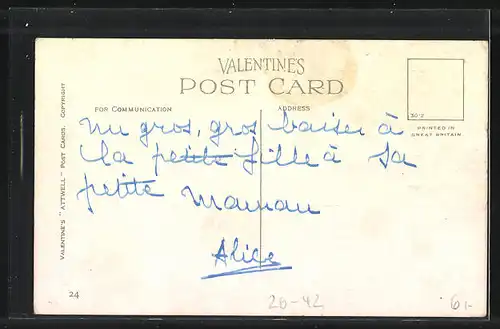 VALENTINE'S
POST CARD
FOR COMMUNICATION
ADDRESS
30-2
PRINTED IN
GREAT BRITAIN
VALENTINE'S "ATTWELL" POST CARDS. COPYRIGHT
un gros, gros baiser à
la petite fille à sa
petite Maman
Alice
24
20-42
6,-